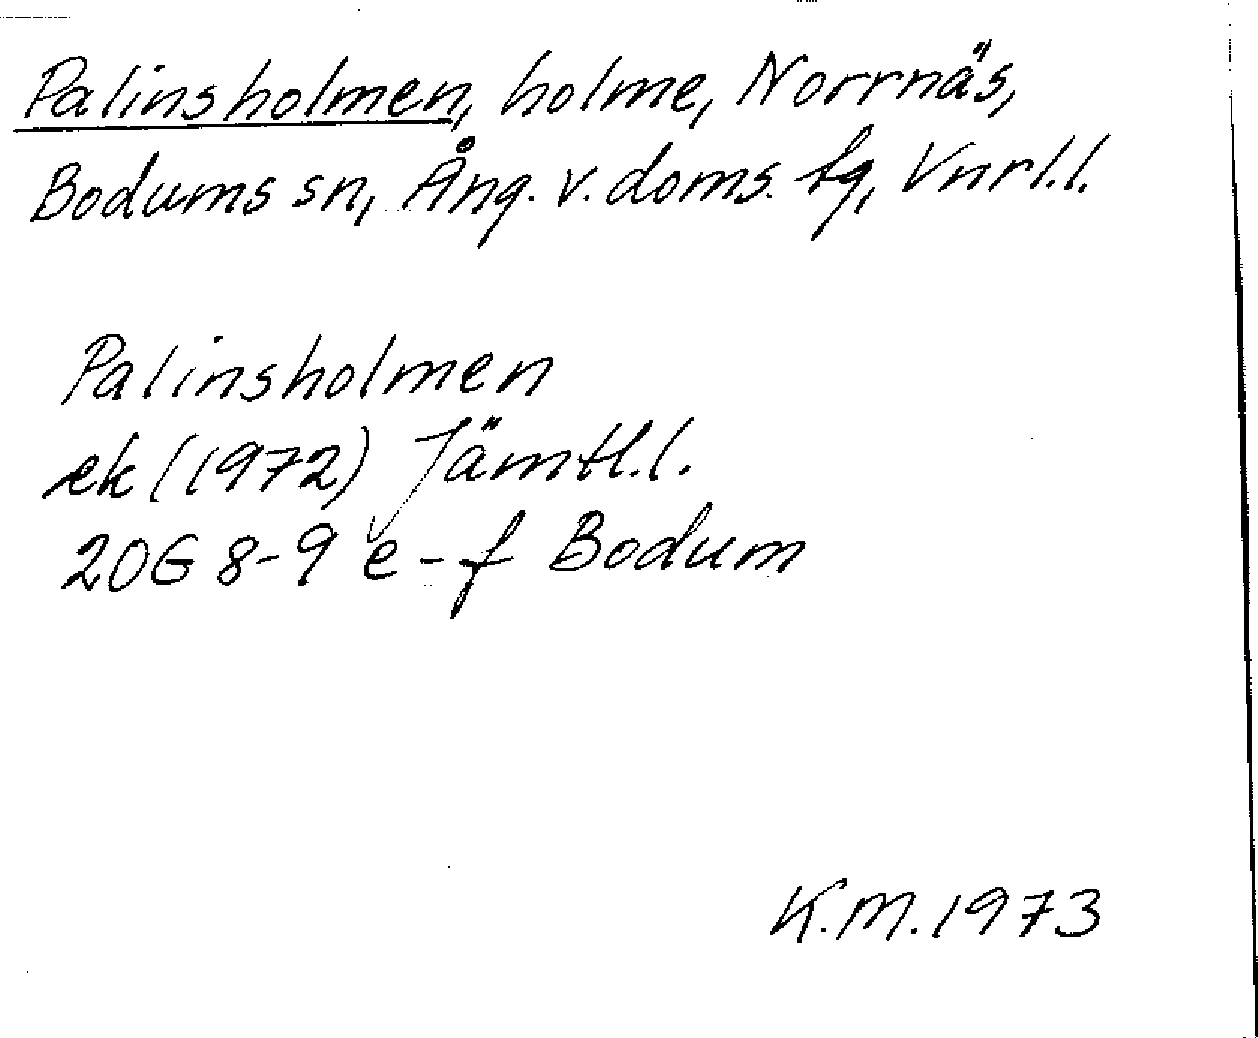 Palinsholmen, holme, Norrnäs,
Bodums sn, Ång. v. doms. fg, Vnrl.l.
Palinsholmen
ek (1972) Jämtl.l.
20G 8-9 e-f Bodum
K.M. 1973